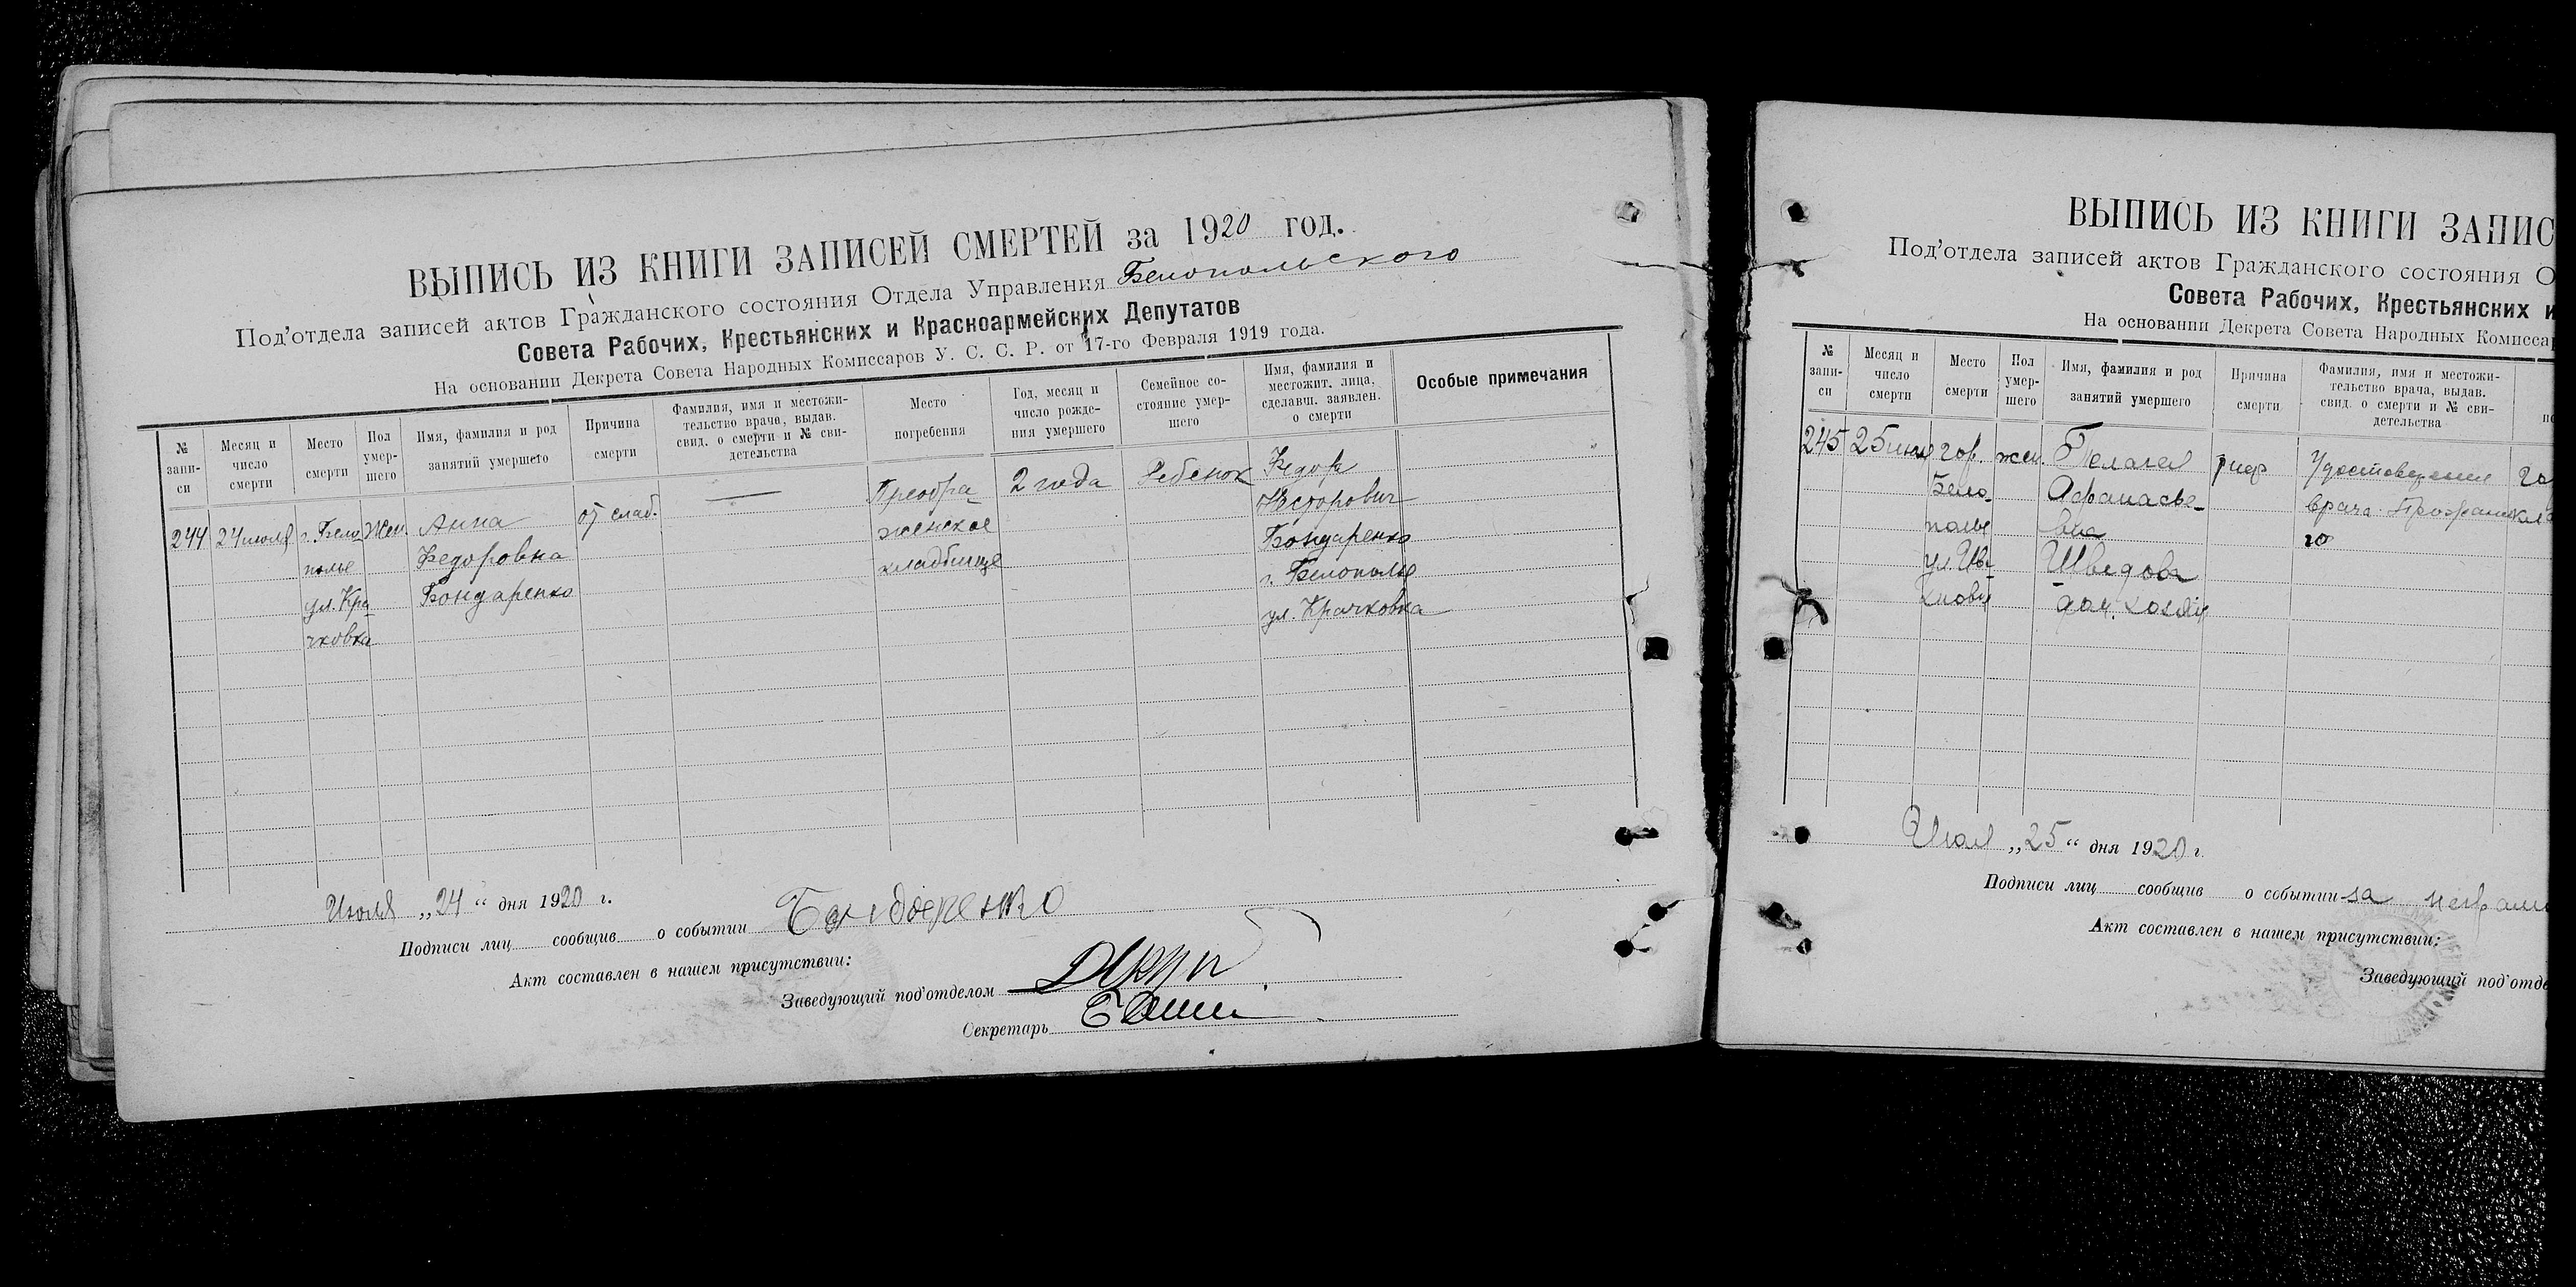 ВЫПИСЬ ИЗ КНИГИ ЗАПИСЕЙ СМЕРТЕЙ за 1920 год.
Под'отдела записей актов Гражданского состояния Отдела Управления Белопольского
Совета Рабочих, Крестьянских и Красноармейских Депутатов
На основании Декрета Совета Народных Комиссаров У. С. С. Р. от 17-го Февраля 1919 года.
№ запи-си
Месяц и число смерти
Место смерти
Пол умер-шего
Имя, фамилия и род занятий умершего
Причина смерти
Фамилия, имя и местожи-тельство врача, выдав. свид. о смерти и № сви-детельства
Место погребения
Год, месяц и число рожде-ния умершего
Семейное со-стояние умер-шего
Имя, фамилия и местожит. лица, сделавш. заявлен. о смерти
Особые примечания
244
24 июля
г. Бело-
полье
ул. Кра-
чковка
Жен.
Анна
Федоровна
Бондаренко
от слаб.
—
Преобра-
женское
кладбище
2 года
Ребенок
Федор
Несторович
Бондаренко
г. Белополье
ул. Крачковка
Июля „24“ дня 1920 г.
Подписи лиц сообщив о событии Бондаренко
Акт составлен в нашем присутствии:
Заведующий под'отделом
Секретарь
ВЫПИСЬ ИЗ КНИГИ ЗАПИС
Под'отдела записей актов Гражданского состояния О
Совета Рабочих, Крестьянских и
На основании Декрета Совета Народных Комиссар
№ запи-си
Месяц и число смерти
Место смерти
Пол умер-шего
Имя, фамилия и род занятий умершего
Причина смерти
Фамилия, имя и местожи-тельство врача, выдав. свид. о смерти и № сви-детельства
по
245
25 июля
гор.
Бело-
полье
жен.
Пелагея
Афанасье-
вна
Шведова
дом. хозяй
тиф
Удостоверение
врача
го
Июля „25“ дня 1920 г.
Подписи лиц сообщив о событии за неграм
Акт составлен в нашем присутствии:
Заведующий под'отде